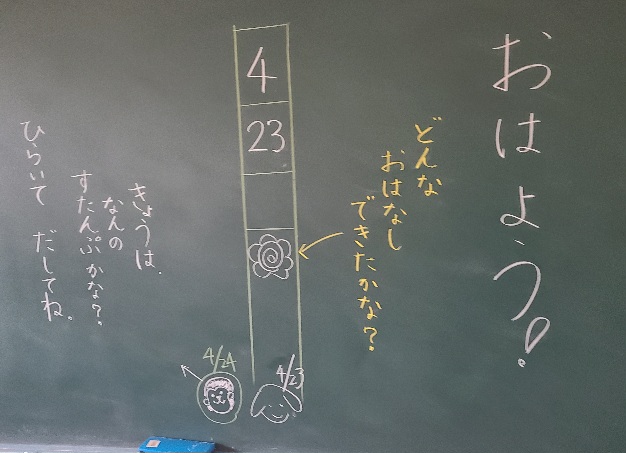 おはよう!
どんな
おはなし
できたかな?
4
23
4/23
4/24
きょうは、
なんの
すたんぷかな?
ひらいて だしてね。